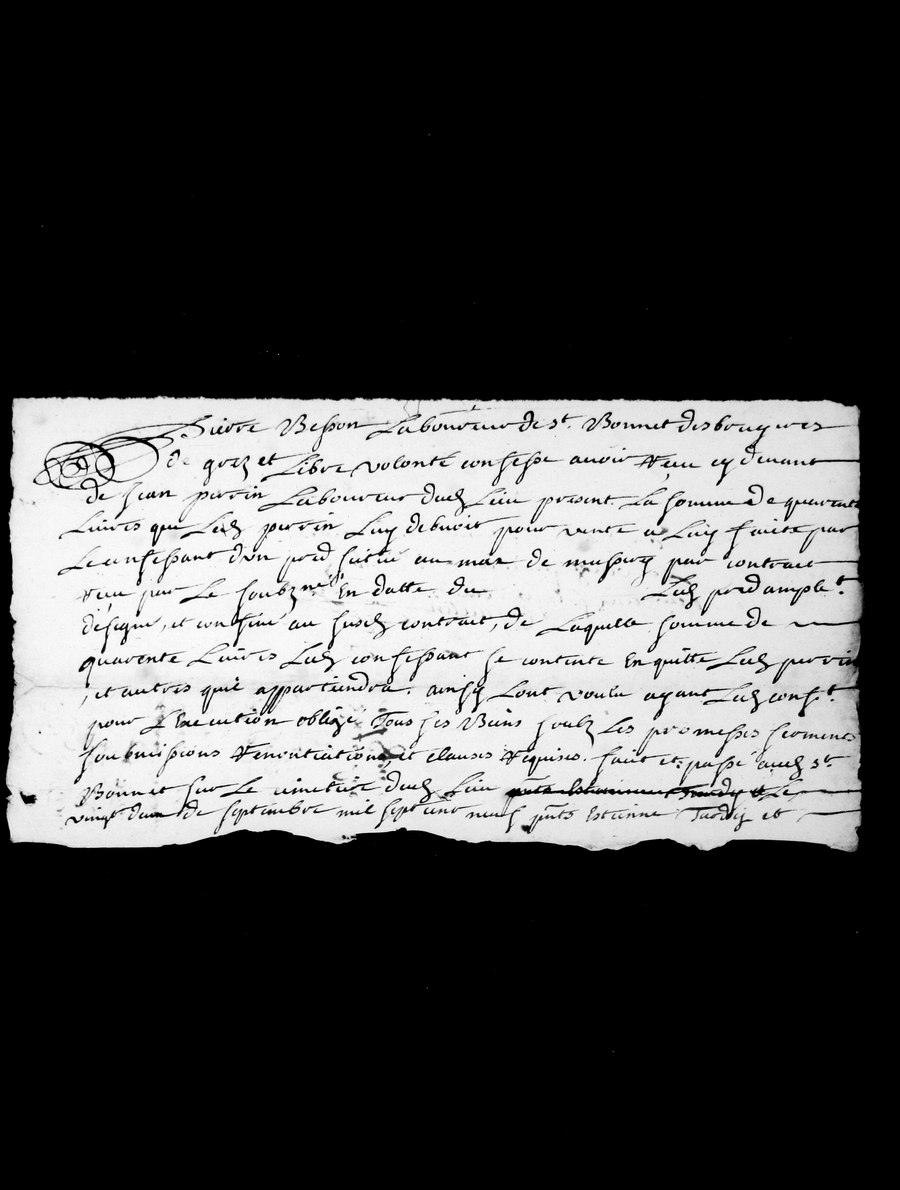 Pierre Besson Laboureur de st. Bonnet desbruyeres
de grez et Libre volonté confesse auoir Receu cy deuant
de Jean perrin Laboureur dud Lieu present La somme de quarente
Liures que Led perrin Luy debuoit pour vente a Luy faite par
Le confessant d'un pred scitué au mas de par contract
Receu par Le soubzne En datte du Led pred amplet.
désigné, et confiné au susd contrait, de Laquelle somme de
quarente Liures Led confessant se contente En quitte Led perrin
, et autres quil appartiendra. ainsy Lont voulu ayant Led confst.
pour L'Execution obligé Tous ses Biens soubz Les promesses serments
soubmissions Renontiations, et clauses Requises. fait et passé aud st
Bonnet sur Le cimetiere dud Lieu pnts Estienne Tardy et Le
vingt deux de septembre mil sept cent neuf pnts Estienne Tardy et